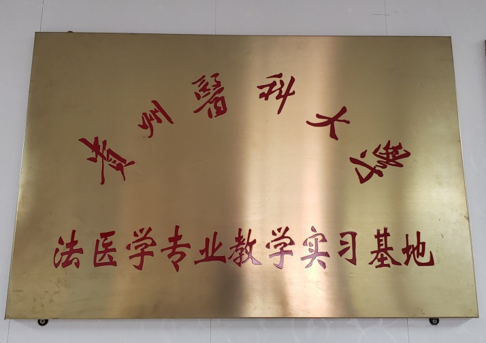 貴州醫科大學
法医学专业教学实习基地